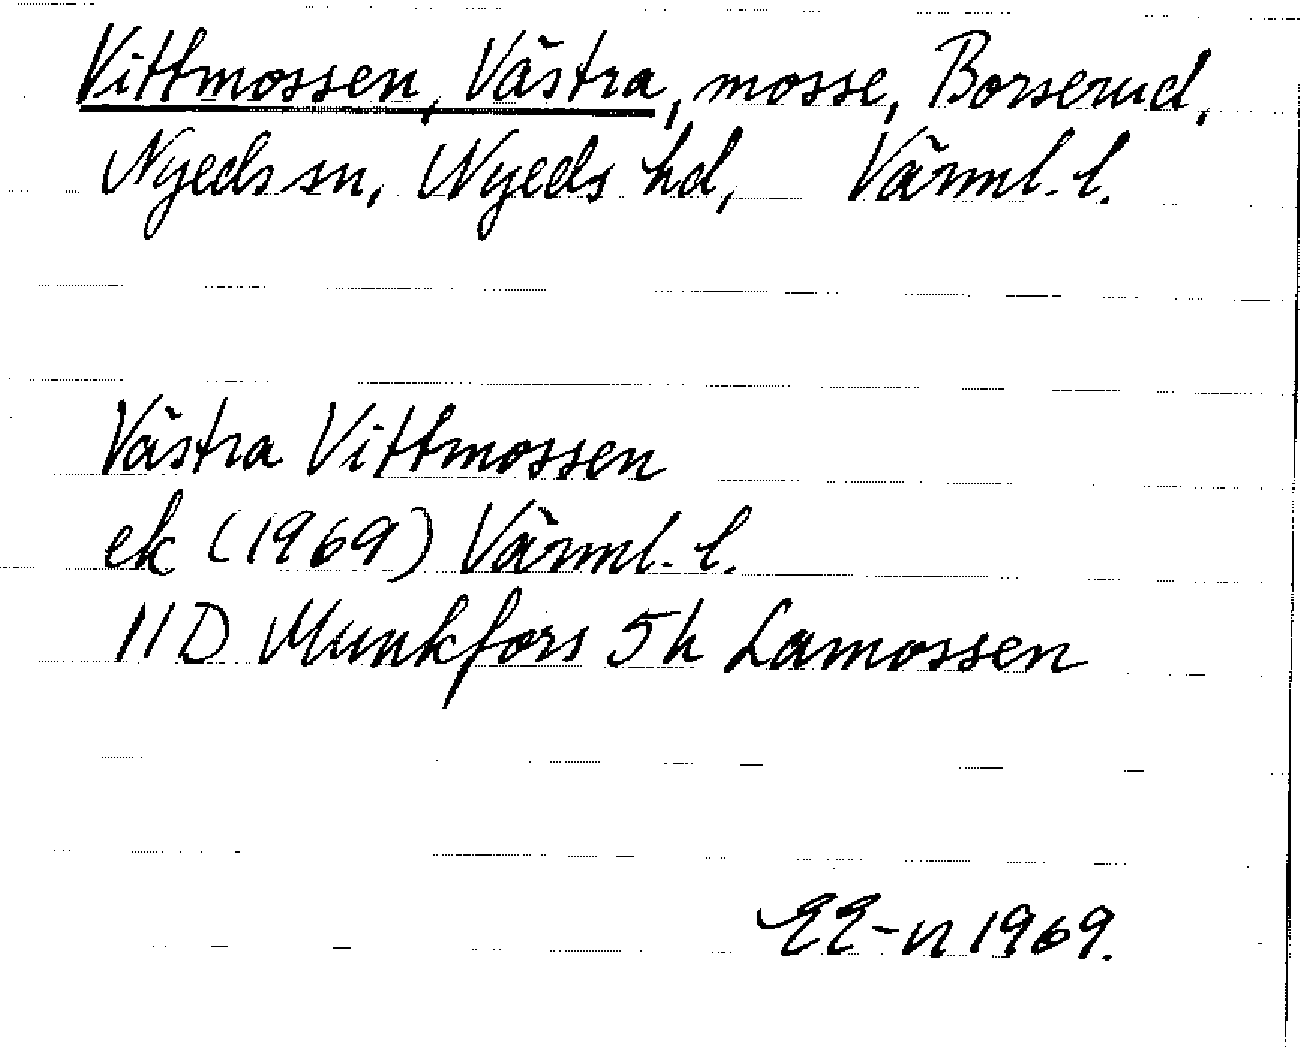 Vittmossen, Västra, mosse, Borserud,
Nyeds sn, Nyeds hd, Värml. l.
Västra Vittmossen
ek (1969) Värml. l.
11D Munkfors 5h Lamossen
EE-n 1969.